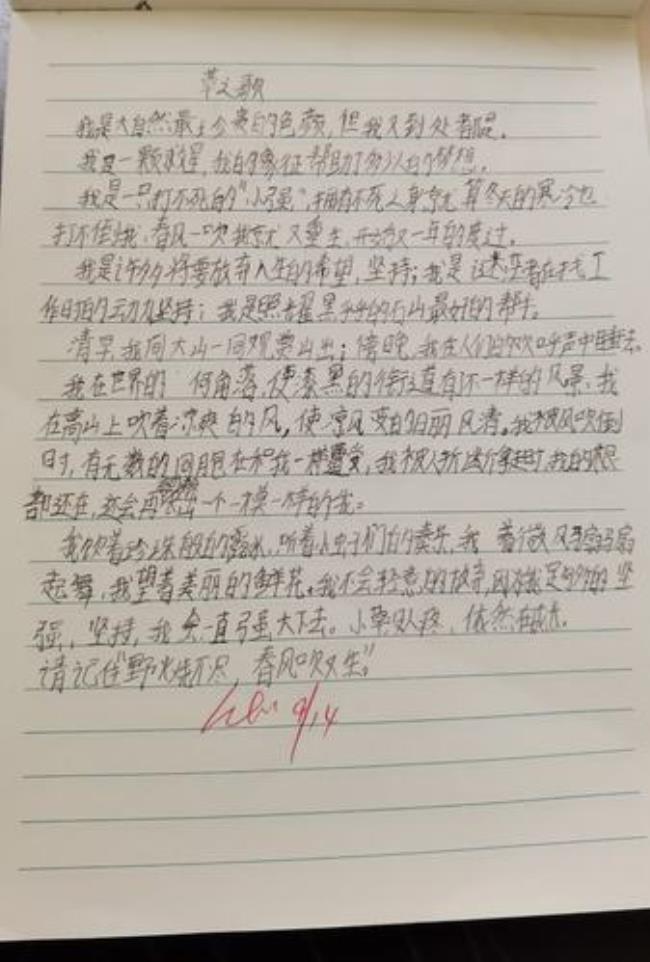 草之歌
我是大自然最土金贵的色颜，但我又到处都是。
我是一颗救星，我的象征帮助了多少人的梦想。
我是一只打不死的"小强"，拥有不死人身就算冬天的寒冷也
打不倒我，春风一吹我就又重生，开始又一年的度过。
我是许多将要放弃人生的希望，坚持；我是这些正在找工
作目的动力坚持；我是照耀黑乎乎的石山最好的帮手。
清早，我同大山一同观赏山出；傍晚，我在人们的欢呼声中睡去。
我在世界的 何角落，使漆黑的街道有不一样的风景，我
在高山上吹着凉爽的风，使凉风变的绚丽风清。我被风吹倒
时，有无数的同胞在和我一样，我被人折断拿走时，我的根
都还在，还会再出一个一模一样的我。
我饮着珍珠般的露水，听着小虫子们的奏乐，我 着微风翩翩
起舞，我望着美丽的鲜花。我不会轻意的放弃，因为我足够的坚
强，坚持，我会一直强大下去。小草队疼，依然
请记住"野火烧不尽，春风吹又生。"
9/14